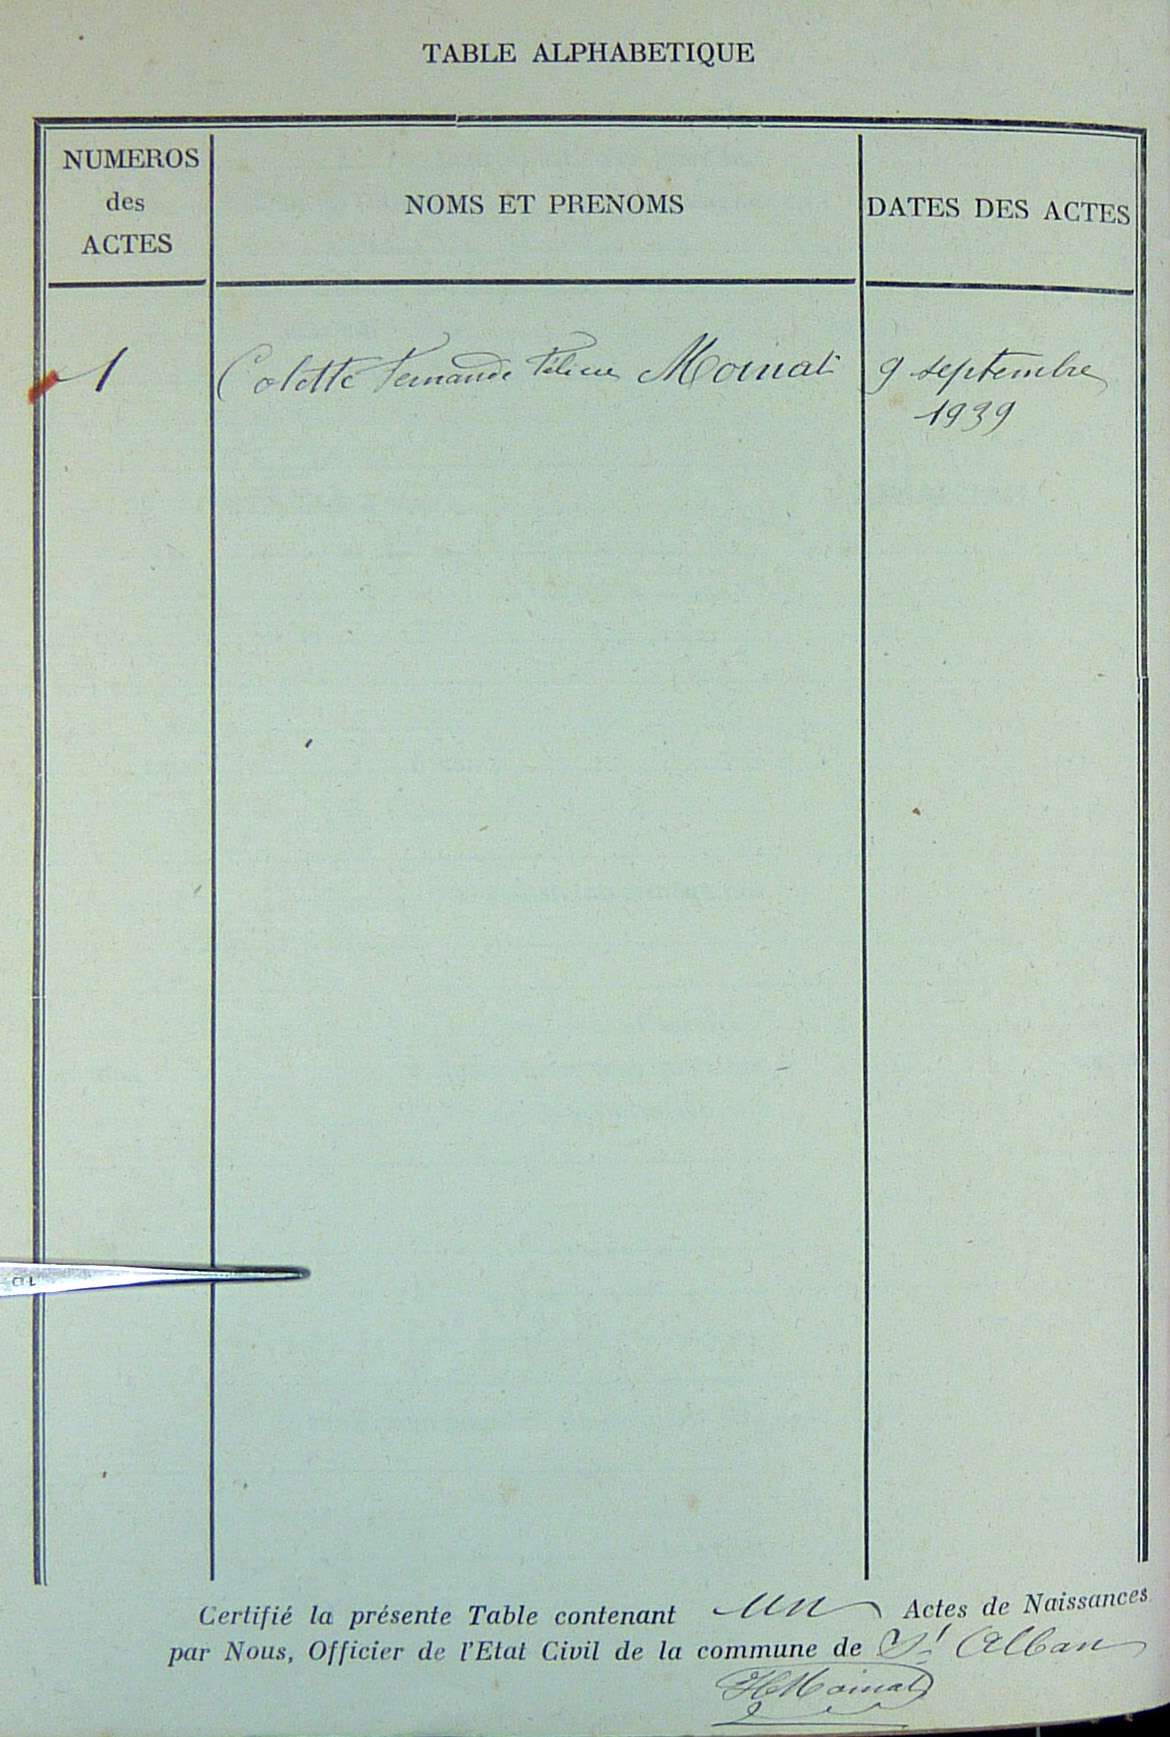 TABLE ALPHABETIQUE
NUMEROS
des
ACTES
NOMS ET PRENOMS
DATES DES ACTES
1 Colette Fernande Félicie Moinat 9 septembre
1939
Certifié la présente Table contenant un Actes de Naissances
par Nous, Officier de l'Etat Civil de la commune de St Alban
Moinat